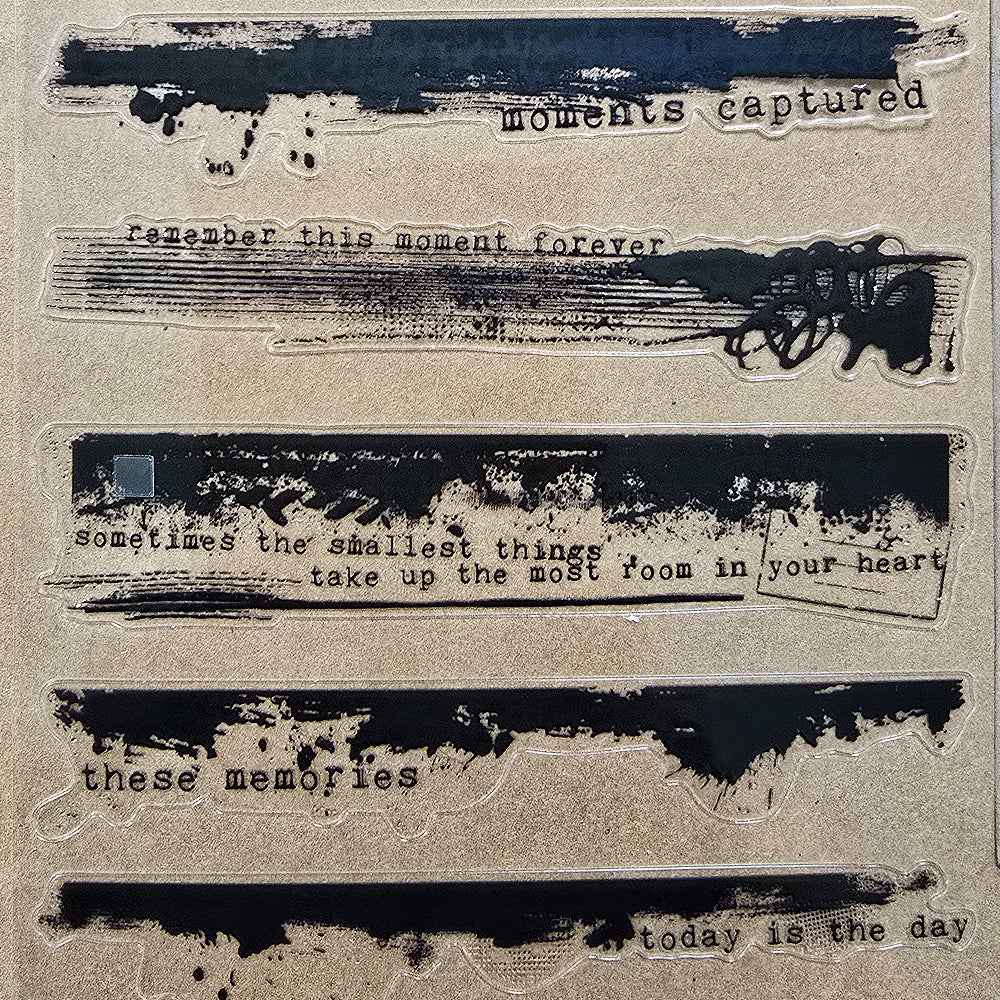 moments captured
remember this moment forever
sometimes the smallest things
take up the most room in your heart
these memories
today is the day